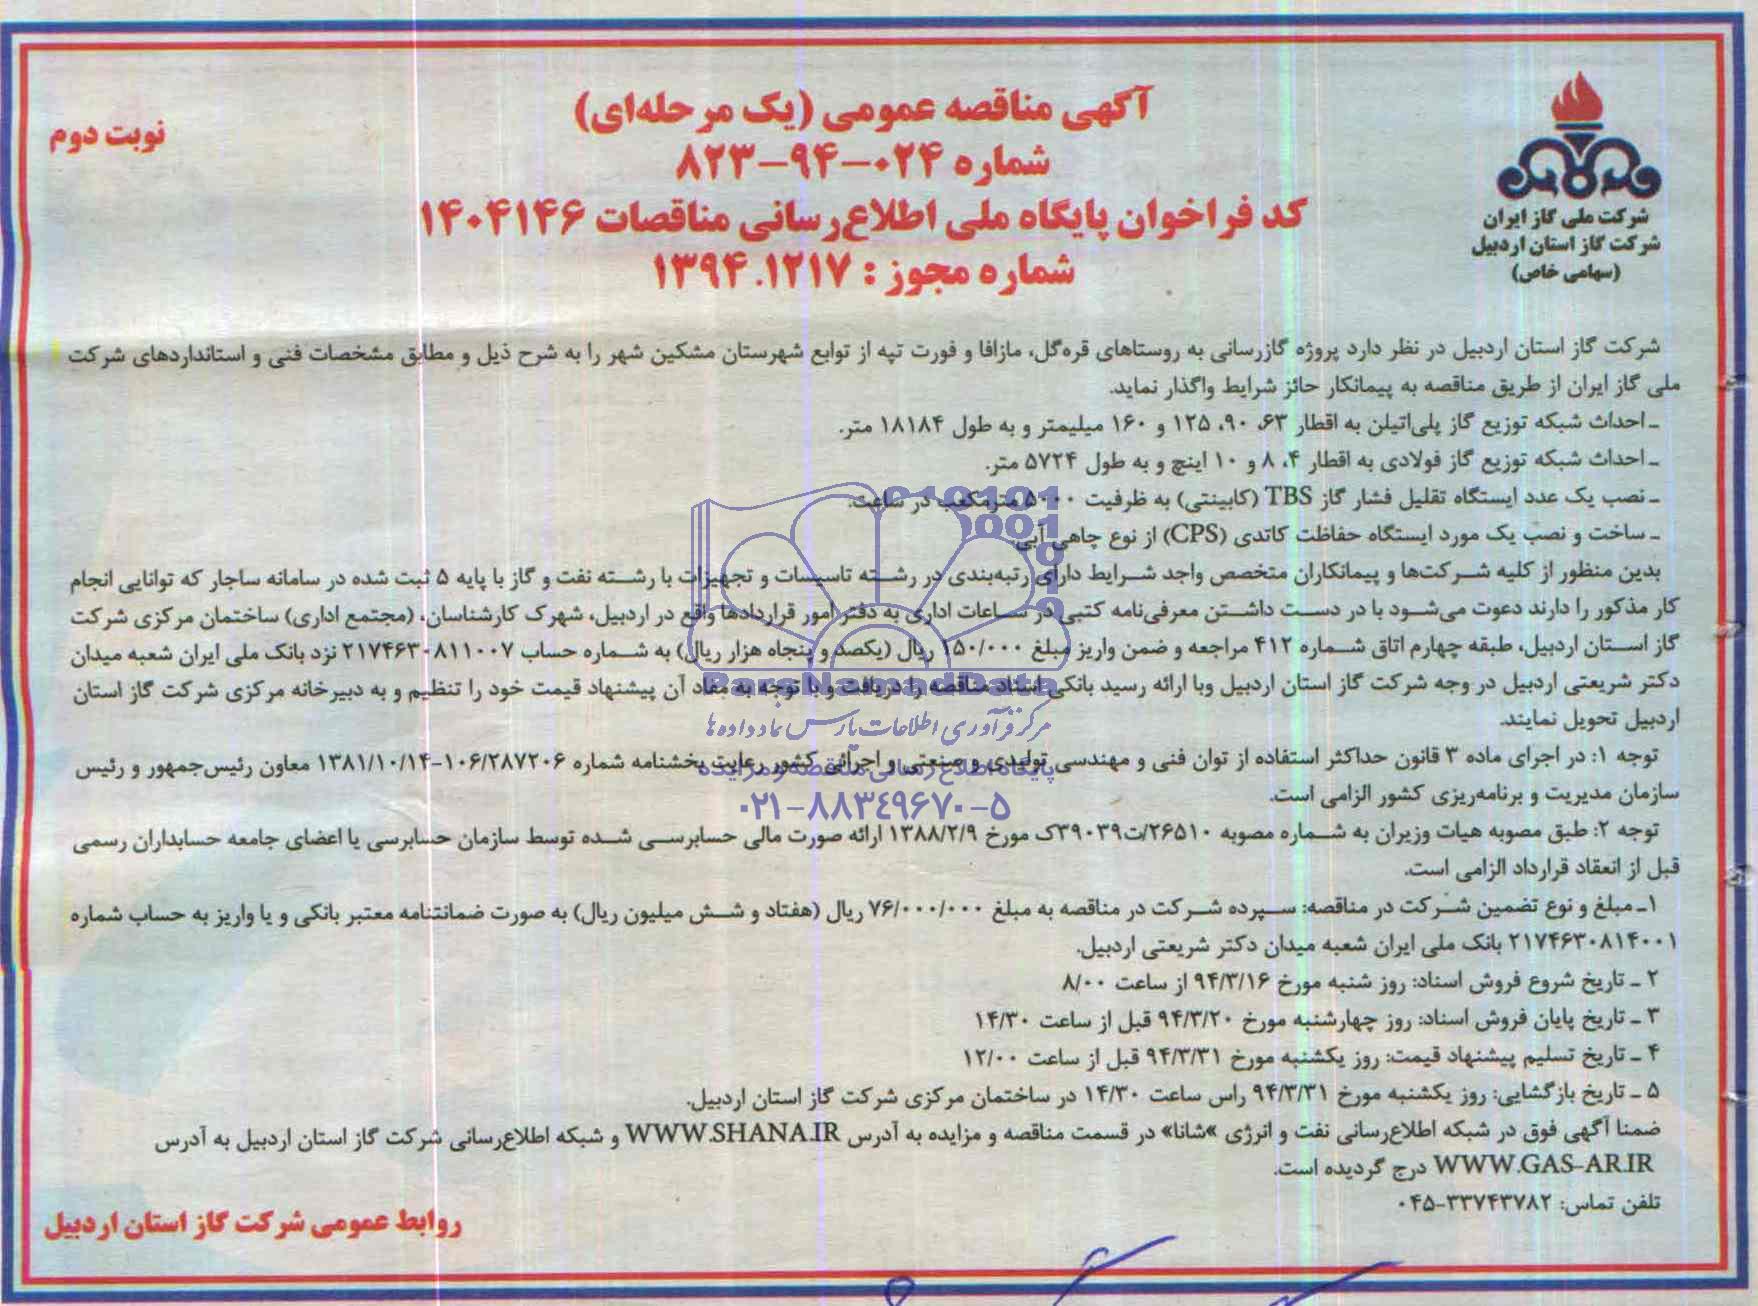 آگهی مناقصه عمومی (یک مرحله‌ای)
نوبت دوم
شماره ۰۲۴-۹۴-۸۲۳
کد فراخوان پایگاه ملی اطلاع‌رسانی مناقصات ۱۴۰۴۱۴۶
شماره مجوز : ۱۳۹۴.۱۲۱۷
شرکت ملی گاز ایران
شرکت گاز استان اردبیل
(سهامی خاص)
شرکت گاز استان اردبیل در نظر دارد پروژه گازرسانی به روستاهای قره‌گل، مازافا و فورت تپه از توابع شهرستان مشکین شهر را به شرح ذیل و مطابق مشخصات فنی و استانداردهای شرکت
ملی گاز ایران از طریق مناقصه به پیمانکار حائز شرایط واگذار نماید.
ـ احداث شبکه توزیع گاز پلی‌اتیلن به اقطار ۶۳، ۹۰، ۱۲۵ و ۱۶۰ میلیمتر و به طول ۱۸۱۸۴ متر.
ـ احداث شبکه توزیع گاز فولادی به اقطار ۴، ۸ و ۱۰ اینچ و به طول ۵۷۲۴ متر.
ـ نصب یک عدد ایستگاه تقلیل فشار گاز TBS (کابینتی) به ظرفیت ۵۰۰۰ مترمکعب در ساعت.
ـ ساخت و نصب یک مورد ایستگاه حفاظت کاتدی (CPS) از نوع چاهی آبی.
بدین منظور از کلیه شرکت‌ها و پیمانکاران متخصص واجد شرایط دارای رتبه‌بندی در رشته تاسیسات و تجهیزات با رشته نفت و گاز با پایه ۵ ثبت شده در سامانه ساجار که توانایی انجام
کار مذکور را دارند دعوت می‌شود با در دست داشتن معرفی‌نامه کتبی در ساعات اداری به دفتر امور قراردادها واقع در اردبیل، شهرک کارشناسان، (مجتمع اداری) ساختمان مرکزی شرکت
گاز استان اردبیل، طبقه چهارم اتاق شماره ۴۱۲ مراجعه و ضمن واریز مبلغ ۱۵۰/۰۰۰ ریال (یکصد و پنجاه هزار ریال) به شماره حساب ۲۱۷۴۶۳۰۸۱۱۰۰۷ نزد بانک ملی ایران شعبه میدان
دکتر شریعتی اردبیل در وجه شرکت گاز استان اردبیل وبا ارائه رسید بانکی اسناد مناقصه را دریافت و با توجه به مفاد آن پیشنهاد قیمت خود را تنظیم و به دبیرخانه مرکزی شرکت گاز استان
اردبیل تحویل نمایند.
توجه ۱: در اجرای ماده ۳ قانون حداکثر استفاده از توان فنی و مهندسی تولیدی و صنعتی و اجرائی کشور رعایت بخشنامه شماره ۱۰۶/۲۸۷۲۰۶-۱۳۸۱/۱۰/۱۴ معاون رئیس‌جمهور و رئیس
سازمان مدیریت و برنامه‌ریزی کشور الزامی است.
توجه ۲: طبق مصوبه هیات وزیران به شماره مصوبه ۲۶۵۱۰/ت۳۹۰۳۹ک مورخ ۱۳۸۸/۲/۹ ارائه صورت مالی حسابرسی شده توسط سازمان حسابرسی یا اعضای جامعه حسابداران رسمی
قبل از انعقاد قرارداد الزامی است.
۱ـ مبلغ و نوع تضمین شرکت در مناقصه: سپرده شرکت در مناقصه به مبلغ ۷۶/۰۰۰/۰۰۰ ریال (هفتاد و شش میلیون ریال) به صورت ضمانتنامه معتبر بانکی و یا واریز به حساب شماره
۲۱۷۴۶۳۰۸۱۴۰۰۱ بانک ملی ایران شعبه میدان دکتر شریعتی اردبیل.
۲ ـ تاریخ شروع فروش اسناد: روز شنبه مورخ ۹۴/۳/۱۶ از ساعت ۸/۰۰
۳ ـ تاریخ پایان فروش اسناد: روز چهارشنبه مورخ ۹۴/۳/۲۰ قبل از ساعت ۱۴/۳۰
۴ ـ تاریخ تسلیم پیشنهاد قیمت: روز یکشنبه مورخ ۹۴/۳/۳۱ قبل از ساعت ۱۲/۰۰
۵ ـ تاریخ بازگشایی: روز یکشنبه مورخ ۹۴/۳/۳۱ راس ساعت ۱۴/۳۰ در ساختمان مرکزی شرکت گاز استان اردبیل.
ضمنا آگهی فوق در شبکه اطلاع‌رسانی نفت و انرژی «شانا» در قسمت مناقصه و مزایده به آدرس WWW.SHANA.IR و شبکه اطلاع‌رسانی شرکت گاز استان اردبیل به آدرس
WWW.GAS-AR.IR درج گردیده است.
تلفن تماس: ۳۳۷۴۳۷۸۲-۰۴۵
روابط عمومی شرکت گاز استان اردبیل
Pars Namad Data
مرکز فرآوری اطلاعات پارس نماد داده ها
پایگاه اطلاع رسانی مناقصه و مزایده
۰۲۱-۸۸۳۴۹۶۷۰-۵